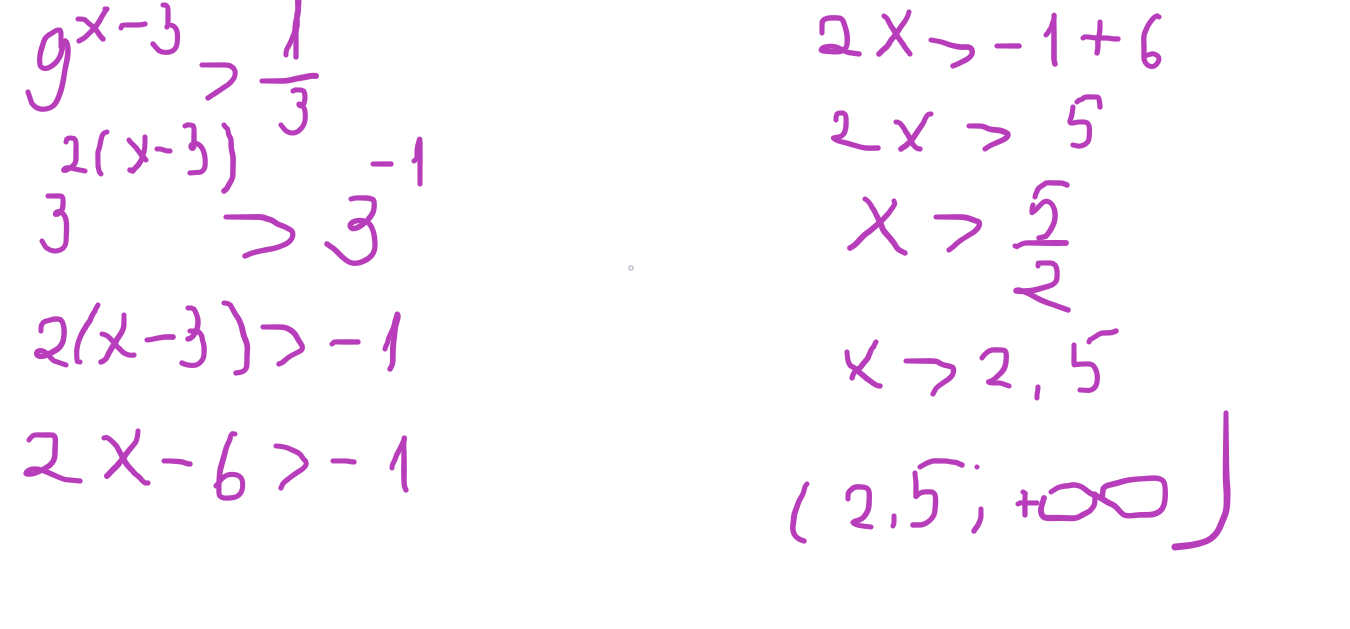 9^(x-3) > 1/3
3^(2(x-3)) > 3^(-1)
2(x-3) > -1
2x-6 > -1
2x > -1+6
2x > 5
x > 5/2
x > 2,5
(2,5; +∞)